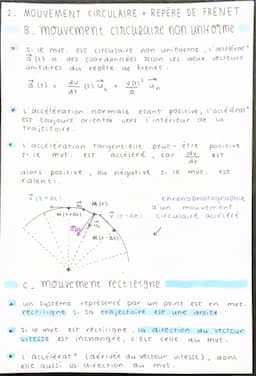 2. MOUVEMENT CIRCULAIRE + REPÈRE DE FRENET
B. mouvement circulaire non uniforme
Si le mvt. est circulaire non uniforme, l'accélérat°
a⃗(t) a des coordonnées selon les deux vecteurs
unitaires du repère de Frenet.
a⃗(t) = dv/dt (t) u⃗t + v²(t)/R u⃗n
L'accélération normale étant positive, l'accélérat°
est toujours orientée vers l'intérieur de la
trajectoire.
L'accélération tangentielle peut-être positive
si le mvt. est accéléré, car dv/dt est
alors positive, ou négative si le mvt. est
ralenti.
Chronophotographie
d'un mouvement
circulaire accéléré
C. mouvement rectiligne
un système représenté par un point est en mvt.
rectiligne si sa trajectoire est une droite.
Si le mvt. est rectiligne, la direction du vecteur
vitesse est inchangée, c'est celle du mvt.
L'accélérat° (dérivée du vecteur vitesse), donc
elle aussi la direction du mvt.